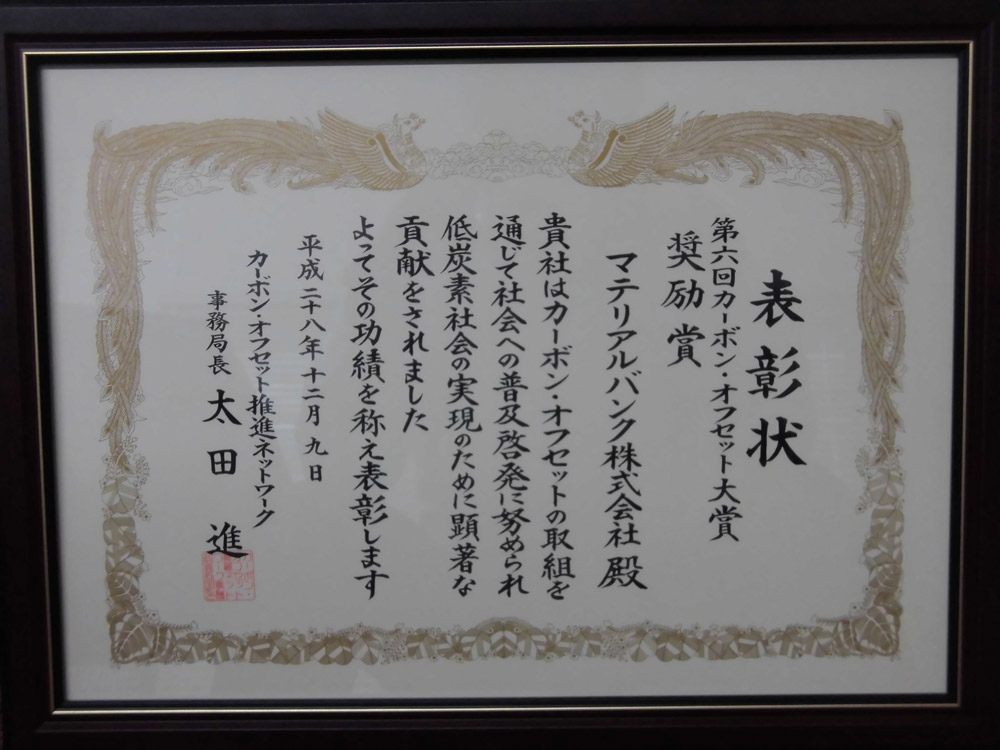 表彰状
第六回カーボン・オフセット大賞
奨励賞
マテリアルバンク株式会社 殿
貴社はカーボン・オフセットの取組を
通じて社会への普及啓発に努められ
低炭素社会の実現のために顕著な
貢献をされました
よってその功績を称え表彰します
平成二十八年十二月九日
カーボン・オフセット推進ネットワーク
事務局長 太田 進